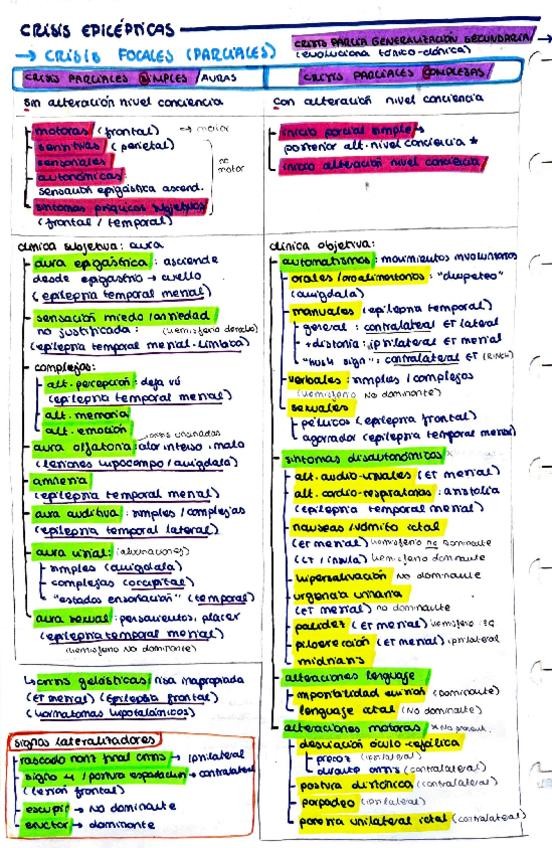 CRISIS EPILÉPTICAS
→ CRISIS FOCALES (PARCIALES)
CRISIS PARCIAL GENERALIZACIÓN SECUNDARIA →
(evoluciona tónico-clónica)
CRISIS PARCIALES SIMPLES / AURAS
sin alteración nivel conciencia
motoras (frontal) → motor
sensitivas (parietal)
sensoriales
autonómicas:
sensación epigástrica ascend.
síntomas psíquicos subjetivos
(frontal / temporal)
no motor
clínica subjetiva: aura
aura epigástrica: asciende
desde epigastrio → cuello
(epilepsia temporal mesial)
sensación miedo / ansiedad
no justificada: (hemisferio derecho)
(epilepsia temporal mesial-límbica)
complejas:
alt. percepción: deja vú
(epilepsia temporal mesial)
alt. memoria
alt. emoción
aura olfatoria: olor intenso, malo
(lesiones hipocampo / amígdala)
amnesia
(epilepsia temporal mesial)
aura auditiva: simples / complejas
(epilepsia temporal lateral)
aura visual:
simples (amígdala)
complejas (occipital)
"estados ensoñación" (temporal)
aura sexual: pensamientos, placer
(epilepsia temporal mesial)
(hemisferio No dominante)
↳ crisis gelásticas: risa inapropiada
(ET mesial) (epilepsia frontal)
(hamartomas hipotalámicos)
signos lateralizadores
rascado nariz final crisis → ipsilateral
signo 4 / postura espadachín → contralateral
(lesión frontal)
escupir → No dominante
eructar → dominante
CRISIS PARCIALES COMPLEJAS
con alteración nivel conciencia
inicio parcial simple →
posterior alt. nivel conciencia *
inicio alteración nivel conciencia
clínica objetiva:
automatismos: movimientos involuntarios
orales / oroalimentarios: "chupeteo"
(amígdala)
manuales (epilepsia temporal)
general: contralateral ET lateral
+ distonía: ipsilateral ET mesial
"hush sign": contralateral ET
verbales: simples / complejas
(hemisferio No dominante)
sexuales
pélvicos (epilepsia frontal)
(epilepsia temporal mesial)
síntomas disautonómicos
alt. audio-visuales (ET mesial)
alt. cardio-respiratorias: asistolia
(epilepsia temporal mesial)
náuseas / vómito ictal
(ET mesial) hemisferio no dominante
(ET / ínsula) hemisferio dominante
hipersalivación No dominante
urgencia urinaria
(ET mesial) no dominante
palidez (ET mesial) hemisferio izq
piloerección (ET mesial) ipsilateral
midriasis
alteraciones lenguaje
imposibilidad emisión (dominante)
lenguaje ictal (No dominante)
alteraciones motoras
desviación óculo-cefálica
precoz (ipsilateral)
durante crisis (contralateral)
postura distónica (contralateral)
parpadeo (ipsilateral)
paresia unilateral ictal (contralateral)